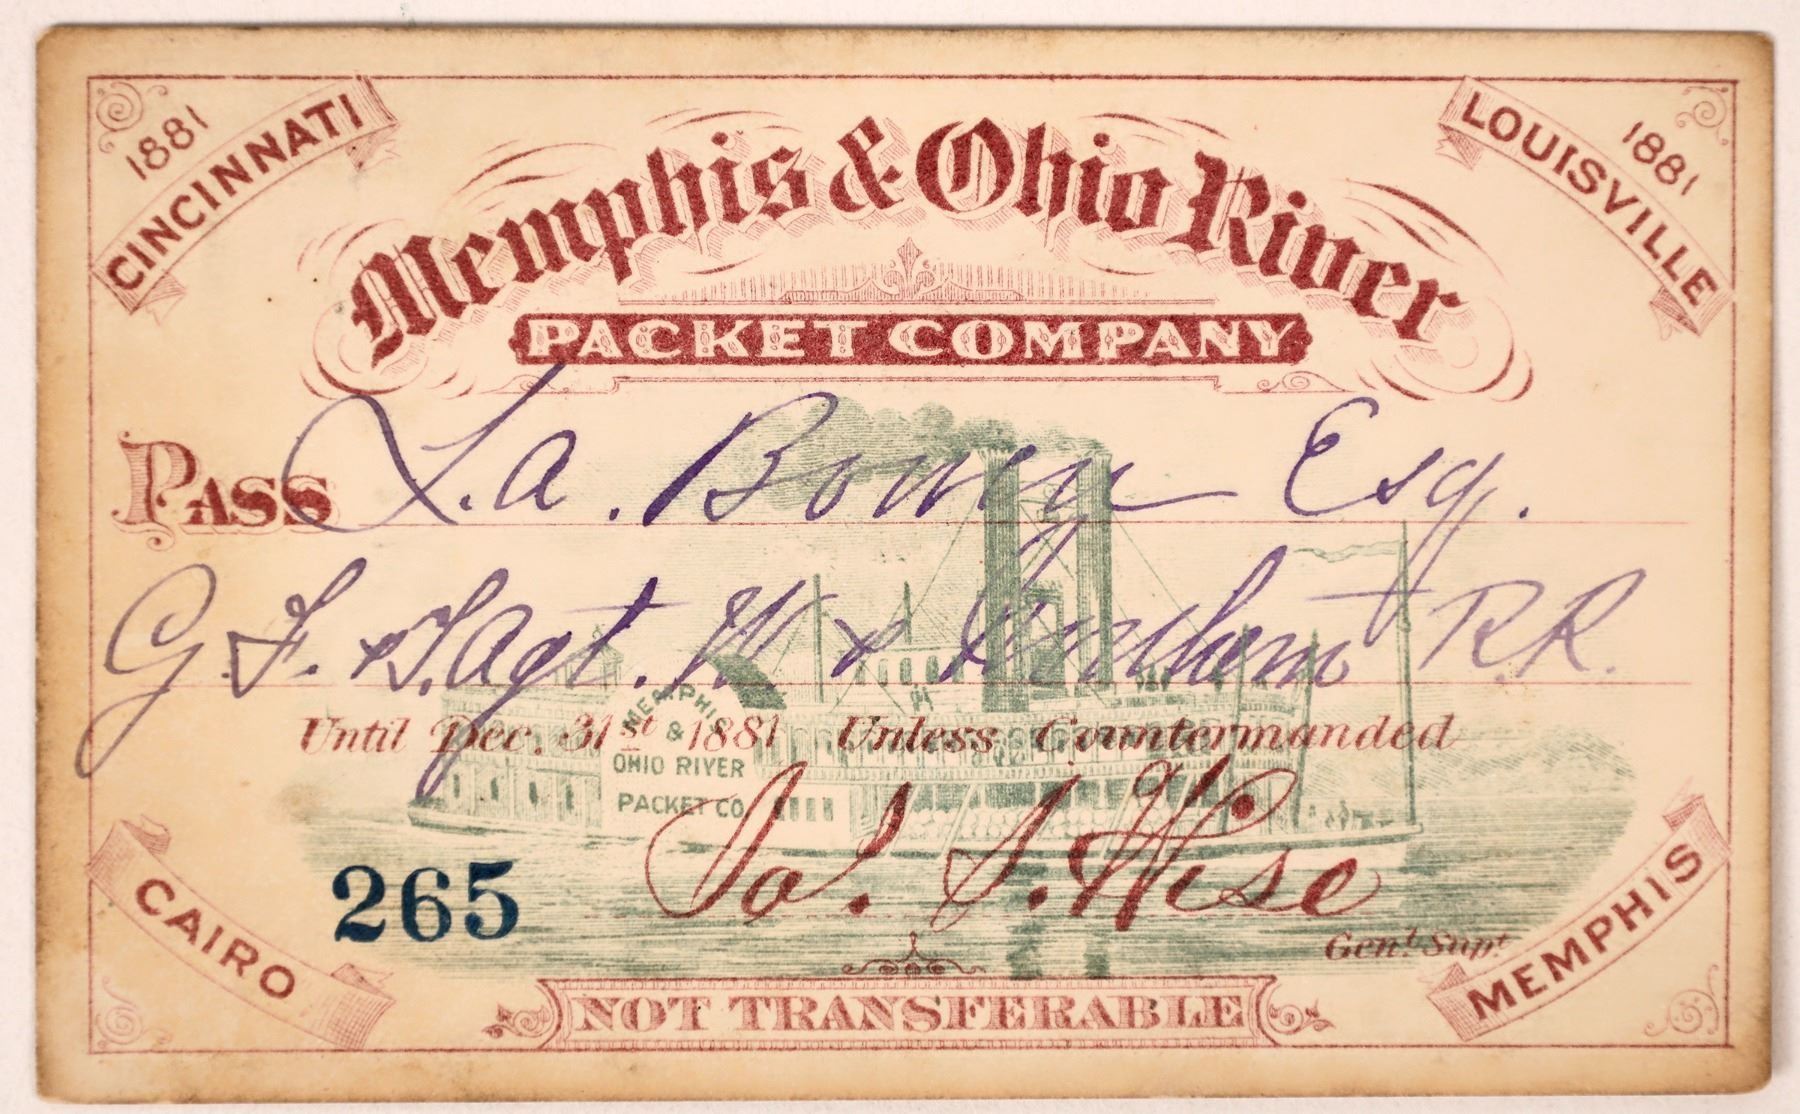 1881
CINCINNATI
1881
LOUISVILLE
Memphis & Ohio River
PACKET COMPANY
PASS L. A. Bowen Esq.
G. F. & T. Agt. R.R.
Until Dec. 31st 1881 Unless Countermanded
MEMPHIS
&
OHIO RIVER
PACKET CO
265
Jas. S. Wise
Genl. Supt.
CAIRO
MEMPHIS
NOT TRANSFERABLE